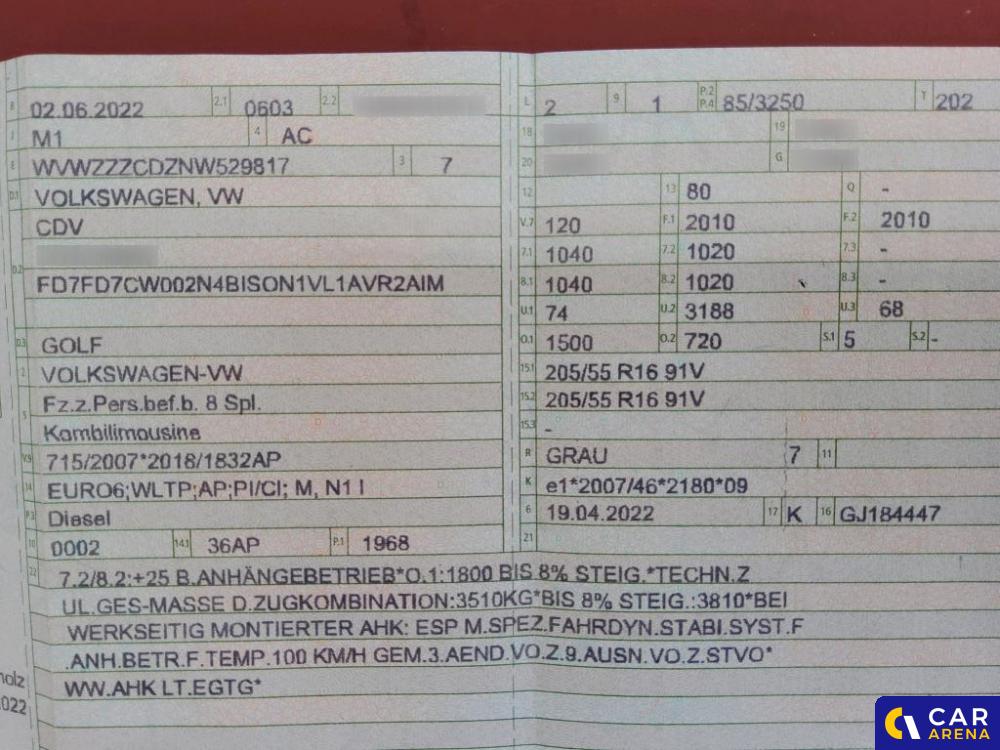 B 02.06.2022 2.1 0603 2.2
J M1 4 AC
E WVWZZZCDZNW529817 3 7
D.1 VOLKSWAGEN, VW
CDV
D.2
FD7FD7CW002N4BISON1VL1AVR2AIM
D.3 GOLF
2 VOLKSWAGEN-VW
5 Fz.z.Pers.bef.b. 8 Spl.
Kombilimousine
V.9 715/2007*2018/1832AP
14 EURO6;WLTP;AP;PI/CI; M, N1 I
P.3 Diesel
10 0002 14.1 36AP P.1 1968
L 2 9 1 P.2 P.4 85/3250 T 202
18 19
20 G
12 13 80 Q -
V.7 120 F.1 2010 F.2 2010
7.1 1040 7.2 1020 7.3 -
8.1 1040 8.2 1020 8.3 -
U.1 74 U.2 3188 U.3 68
O.1 1500 O.2 720 S.1 5 S.2 -
15.1 205/55 R16 91V
15.2 205/55 R16 91V
15.3 -
R GRAU 7 11
K e1*2007/46*2180*09
6 19.04.2022 17 K 16 GJ184447
21
22 7.2/8.2:+25 B.ANHÄNGEBETRIEB*O.1:1800 BIS 8% STEIG.*TECHN.Z
UL.GES-MASSE D.ZUGKOMBINATION:3510KG*BIS 8% STEIG.:3810*BEI
WERKSEITIG MONTIERTER AHK: ESP M.SPEZ.FAHRDYN.STABI.SYST.F
.ANH.BETR.F.TEMP.100 KM/H GEM.3.AEND.VO.Z.9.AUSN.VO.Z.STVO*
WW.AHK LT.EGTG*
holz
2022
CAR
ARENA